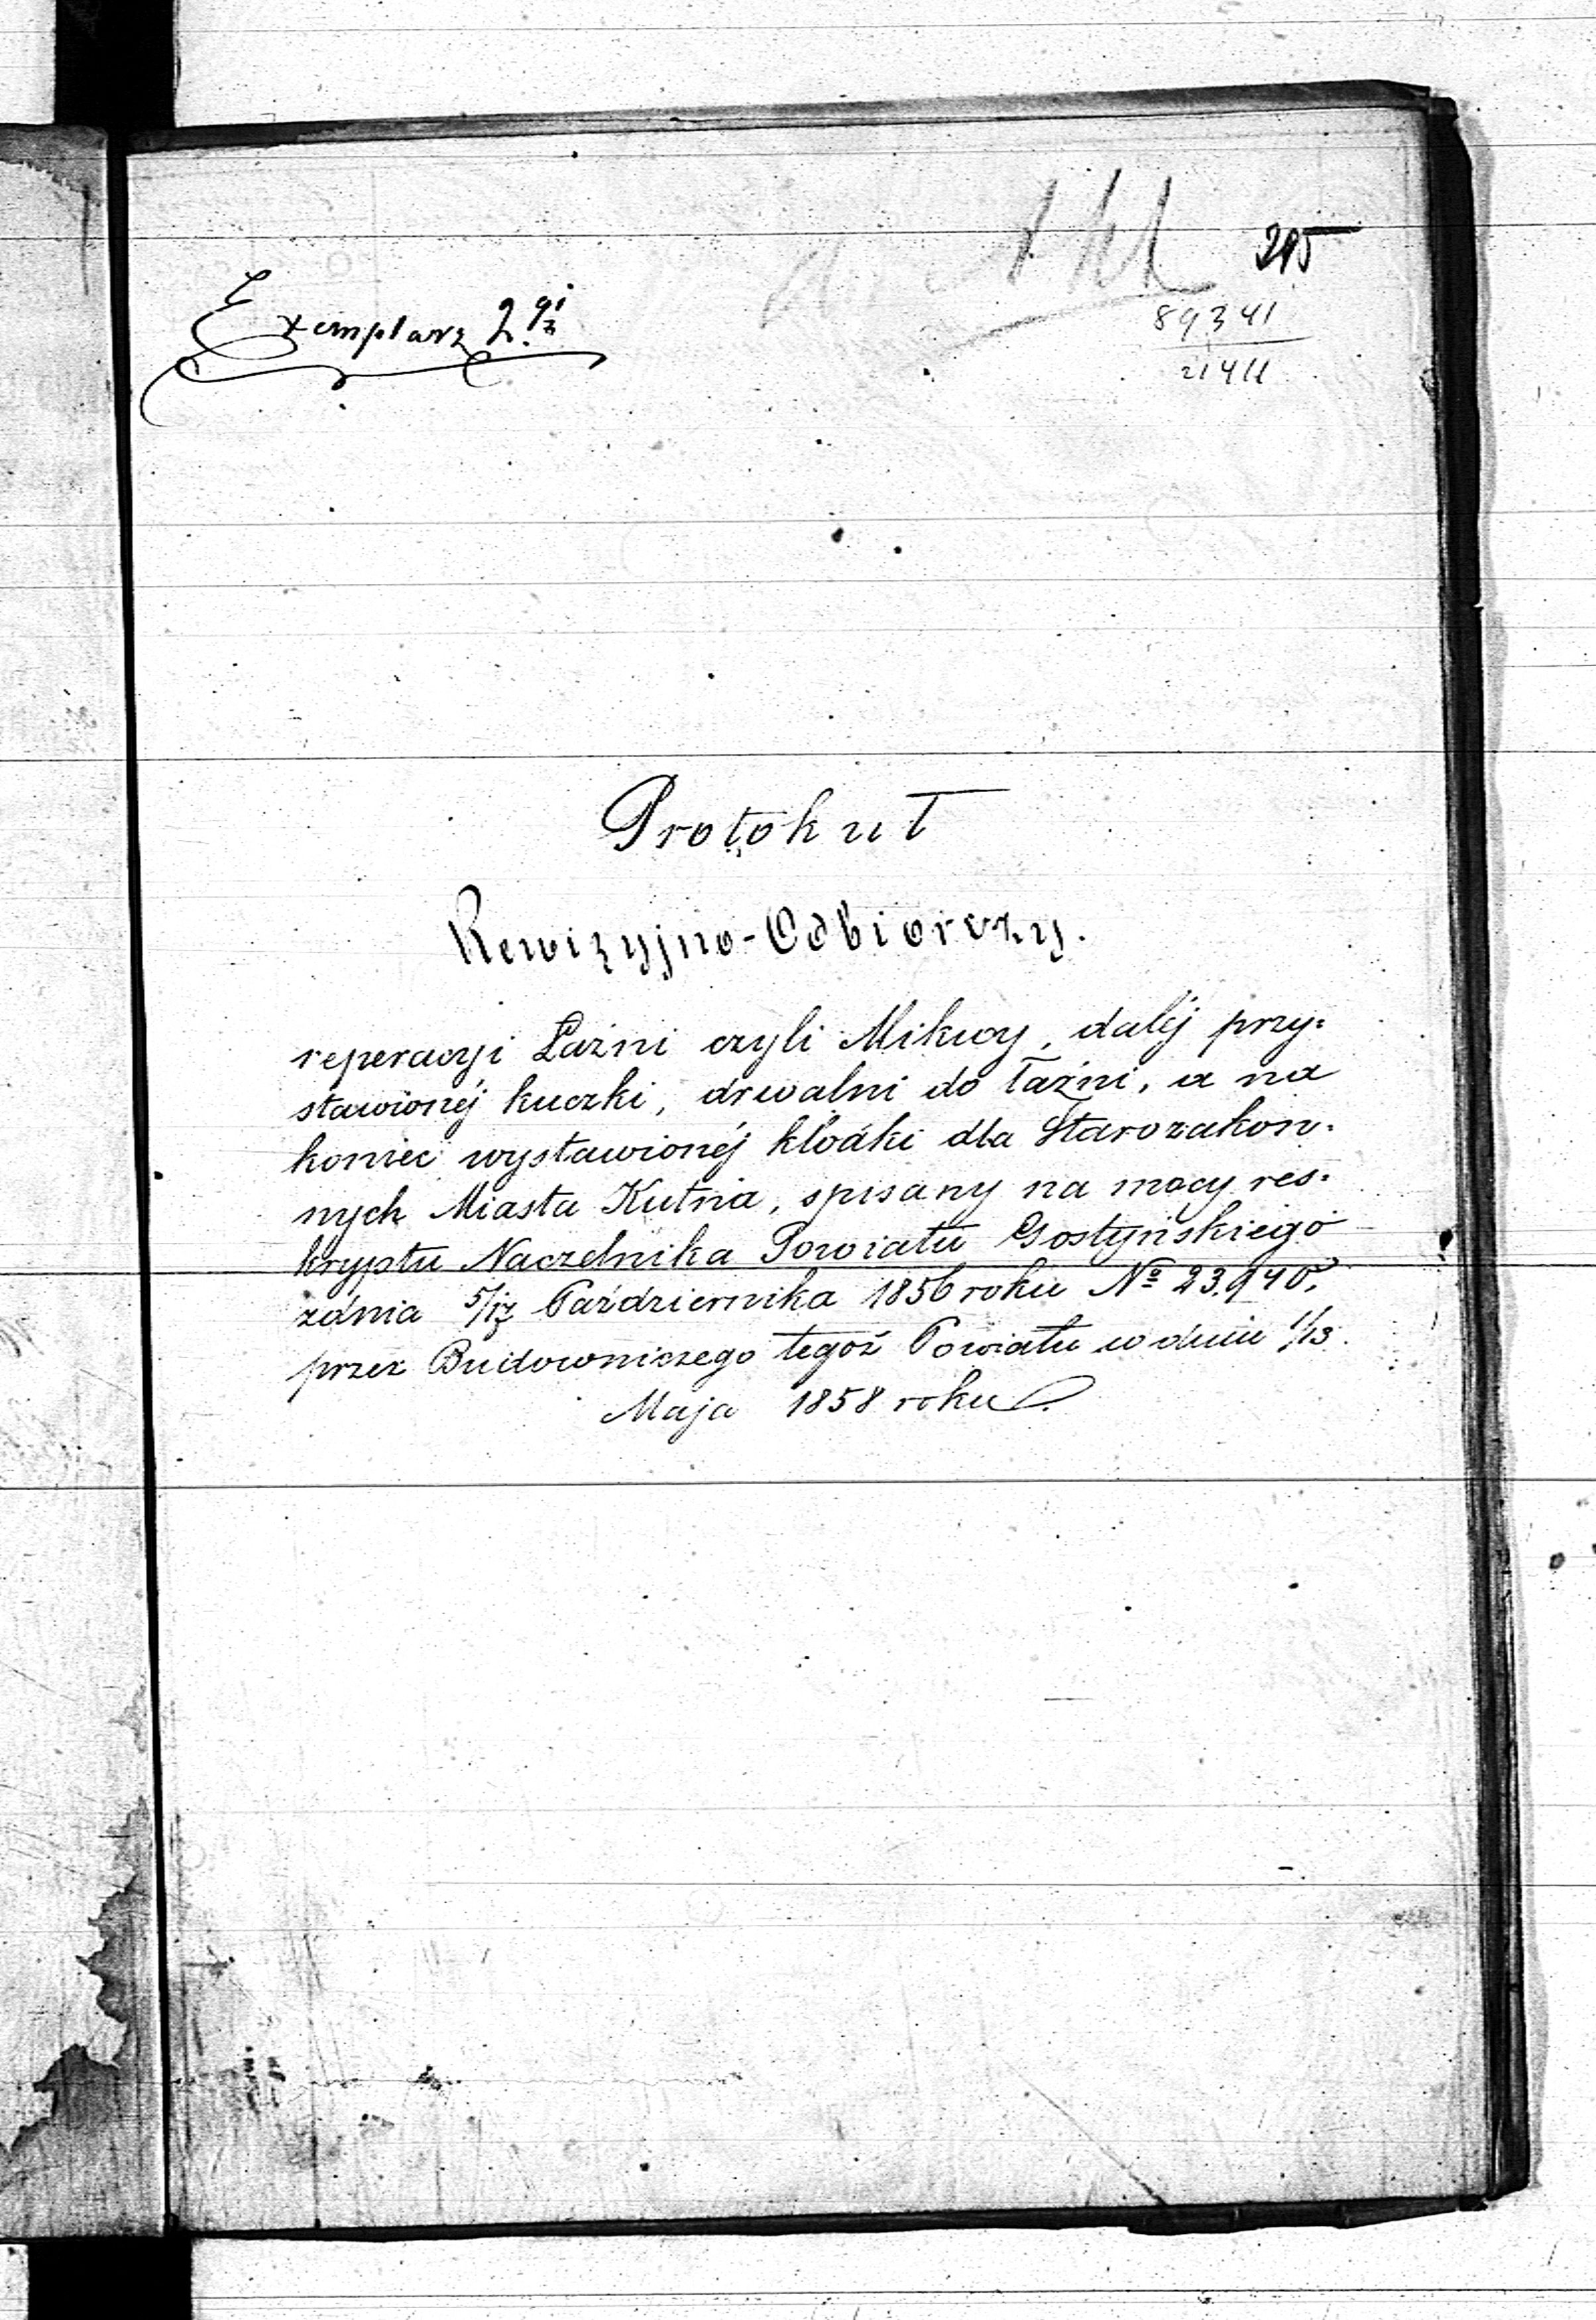 215
89341
21411
Exemplarz 2gi
Protokuł
Rewizyjno-Odbiorczy.
reperacyi Łaźni czyli Mikwy, daléj przy=
stawionéj kuczki, drwalni do łaźni, a na
koniec wystawionéj kloáki dla Starozakon=
nych Miasta Kutna, spisany na mocy res=
kryptu Naczelnika Powiatu Gostyńskiego
zdnia 5/17 Października 1856 roku № 23,940,
przez Budowniczego tegoż Powiatu w dniu 1/13
Maja 1858 roku.